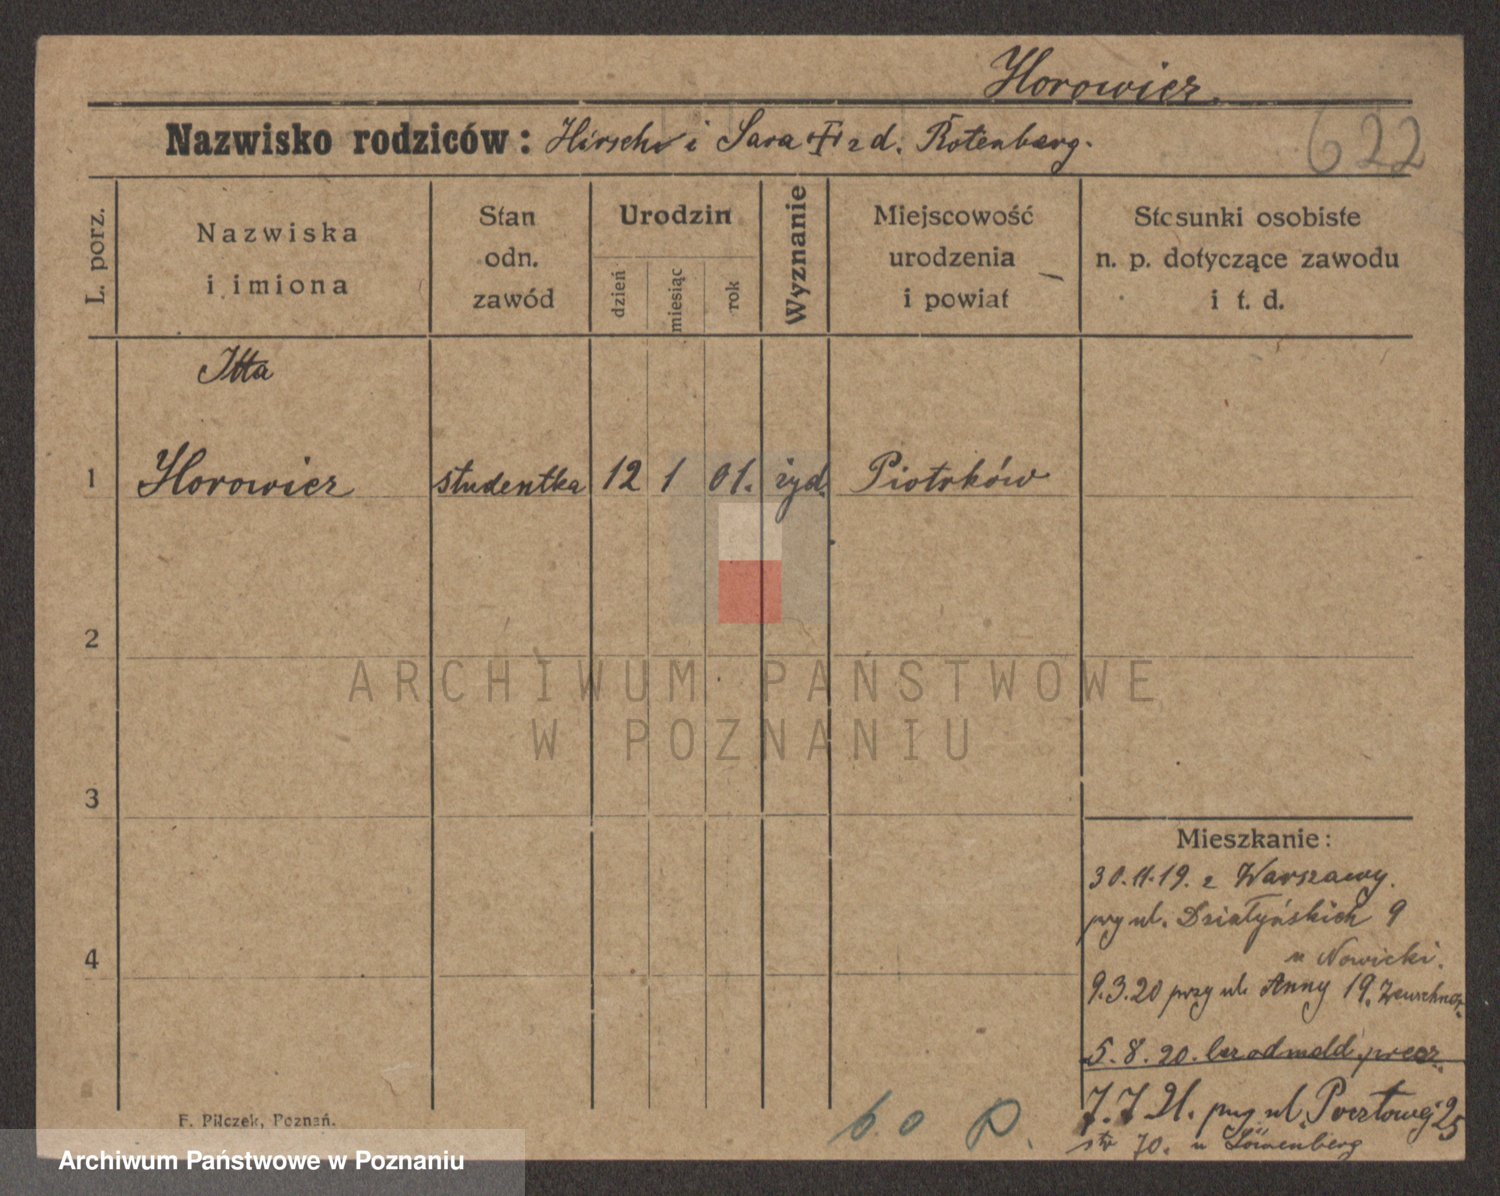 Horowicz.
Nazwisko rodziców: Hirsch i Sara zd. Rotenberg.
622
L. porz.
Nazwiska
i imiona
Stan
odn.
zawód
Urodzin
dzień
miesiąc
rok
Wyznanie
Miejscowość
urodzenia
i powiat
Stosunki osobiste
n. p. dotyczące zawodu
i t. d.
Itta
1 Horowicz studentka 12 1 01. żyd. Piotrków
2
ARCHIWUM PAŃSTWOWE
W POZNANIU
3
Mieszkanie:
30.11.19. z Warszawy.
przy ul. Działyńskich 9
u Nowicki.
4
9.3.20 przy ul. Anny 19.
5.8.20. bez odmeld. precz.
7.7.21. przy ul. Pocztowej 25
str 70. u Löwenberg
6.0 P.
F. Pilczek, Poznań.
Archiwum Państwowe w Poznaniu